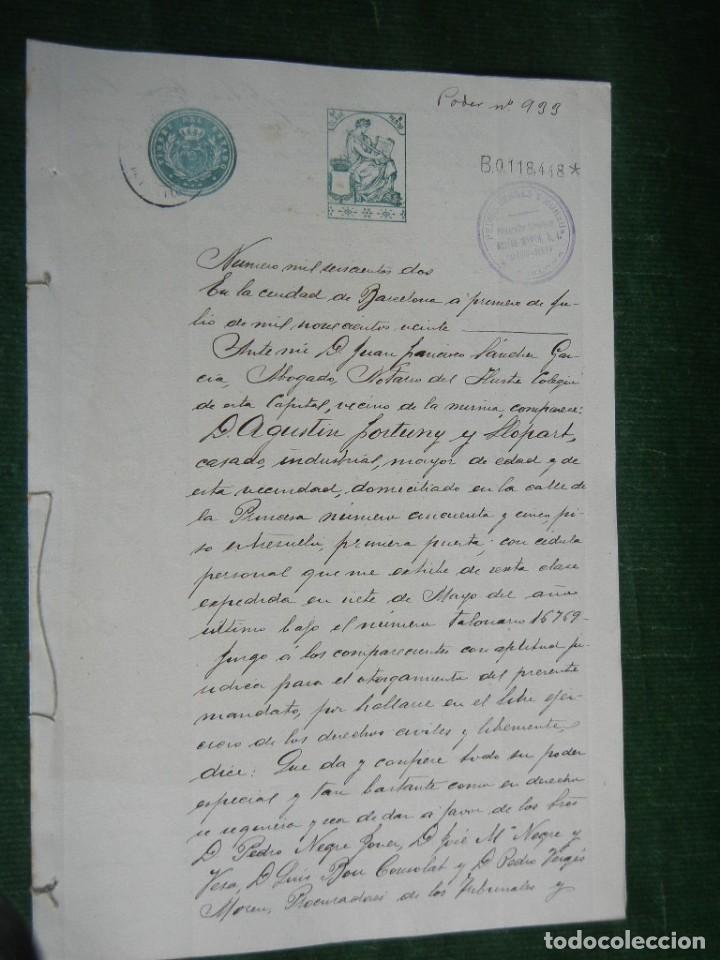 Poder nº 933
B.0.118,448*
Numero mil seiscientos dos
En la ciudad de Barcelona á primero de Ju-
lio de mil novecientos veinte
Ante mi D. Juan Francisco Sánchez Gar-
cia, Abogado, Notario del Ilustre Colegio
de esta Capital, vecino de la misma, comparece:
D. Agustin Fortuny y Llopart,
casado, industrial, mayor de edad y de
esta vecindad, domiciliado en la calle de
la Princesa número cincuenta y cinco, pi-
so entresuelo, primera puerta; con cédula
personal que me exhibe de sexta clase
expedida en siete de Mayo del año
último bajo el número talonario 16769-
Juzgo á los comparecientes con aptitud ju-
rídica para el otorgamiento del presente
mandato, por hallarse en el libre ejer-
cicio de los derechos civiles y libremente,
dice: Que da y confiere todo su poder
especial y tan bastante como en derecho
se requiera y sea de dar á favor de los
D. Pedro Negre Jover, D. José Mª Negre y
D. Luis Bou Consolat y D. Pedro Vergés
Procuradores de los Tribunales y
todocoleccion
todocoleccion.net